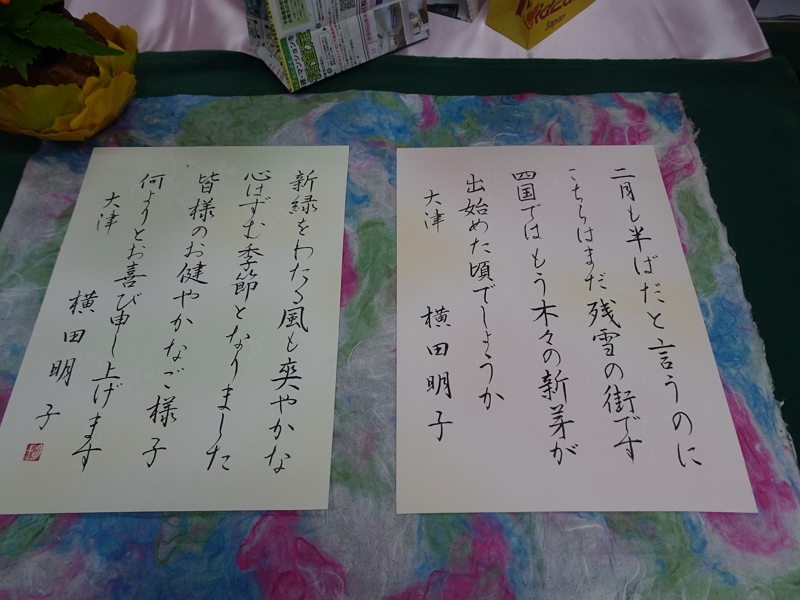 二月も半ばだと言うのに
こちらはまだ残雪の街です
四国ではもう木々の新芽が
出始めた頃でしょうか
大津 横田明子
新緑をわたる風も爽やかな
心はずむ季節となりました
皆様のお健やかなご様子
何よりとお喜び申し上げます
大津 横田明子
Japan